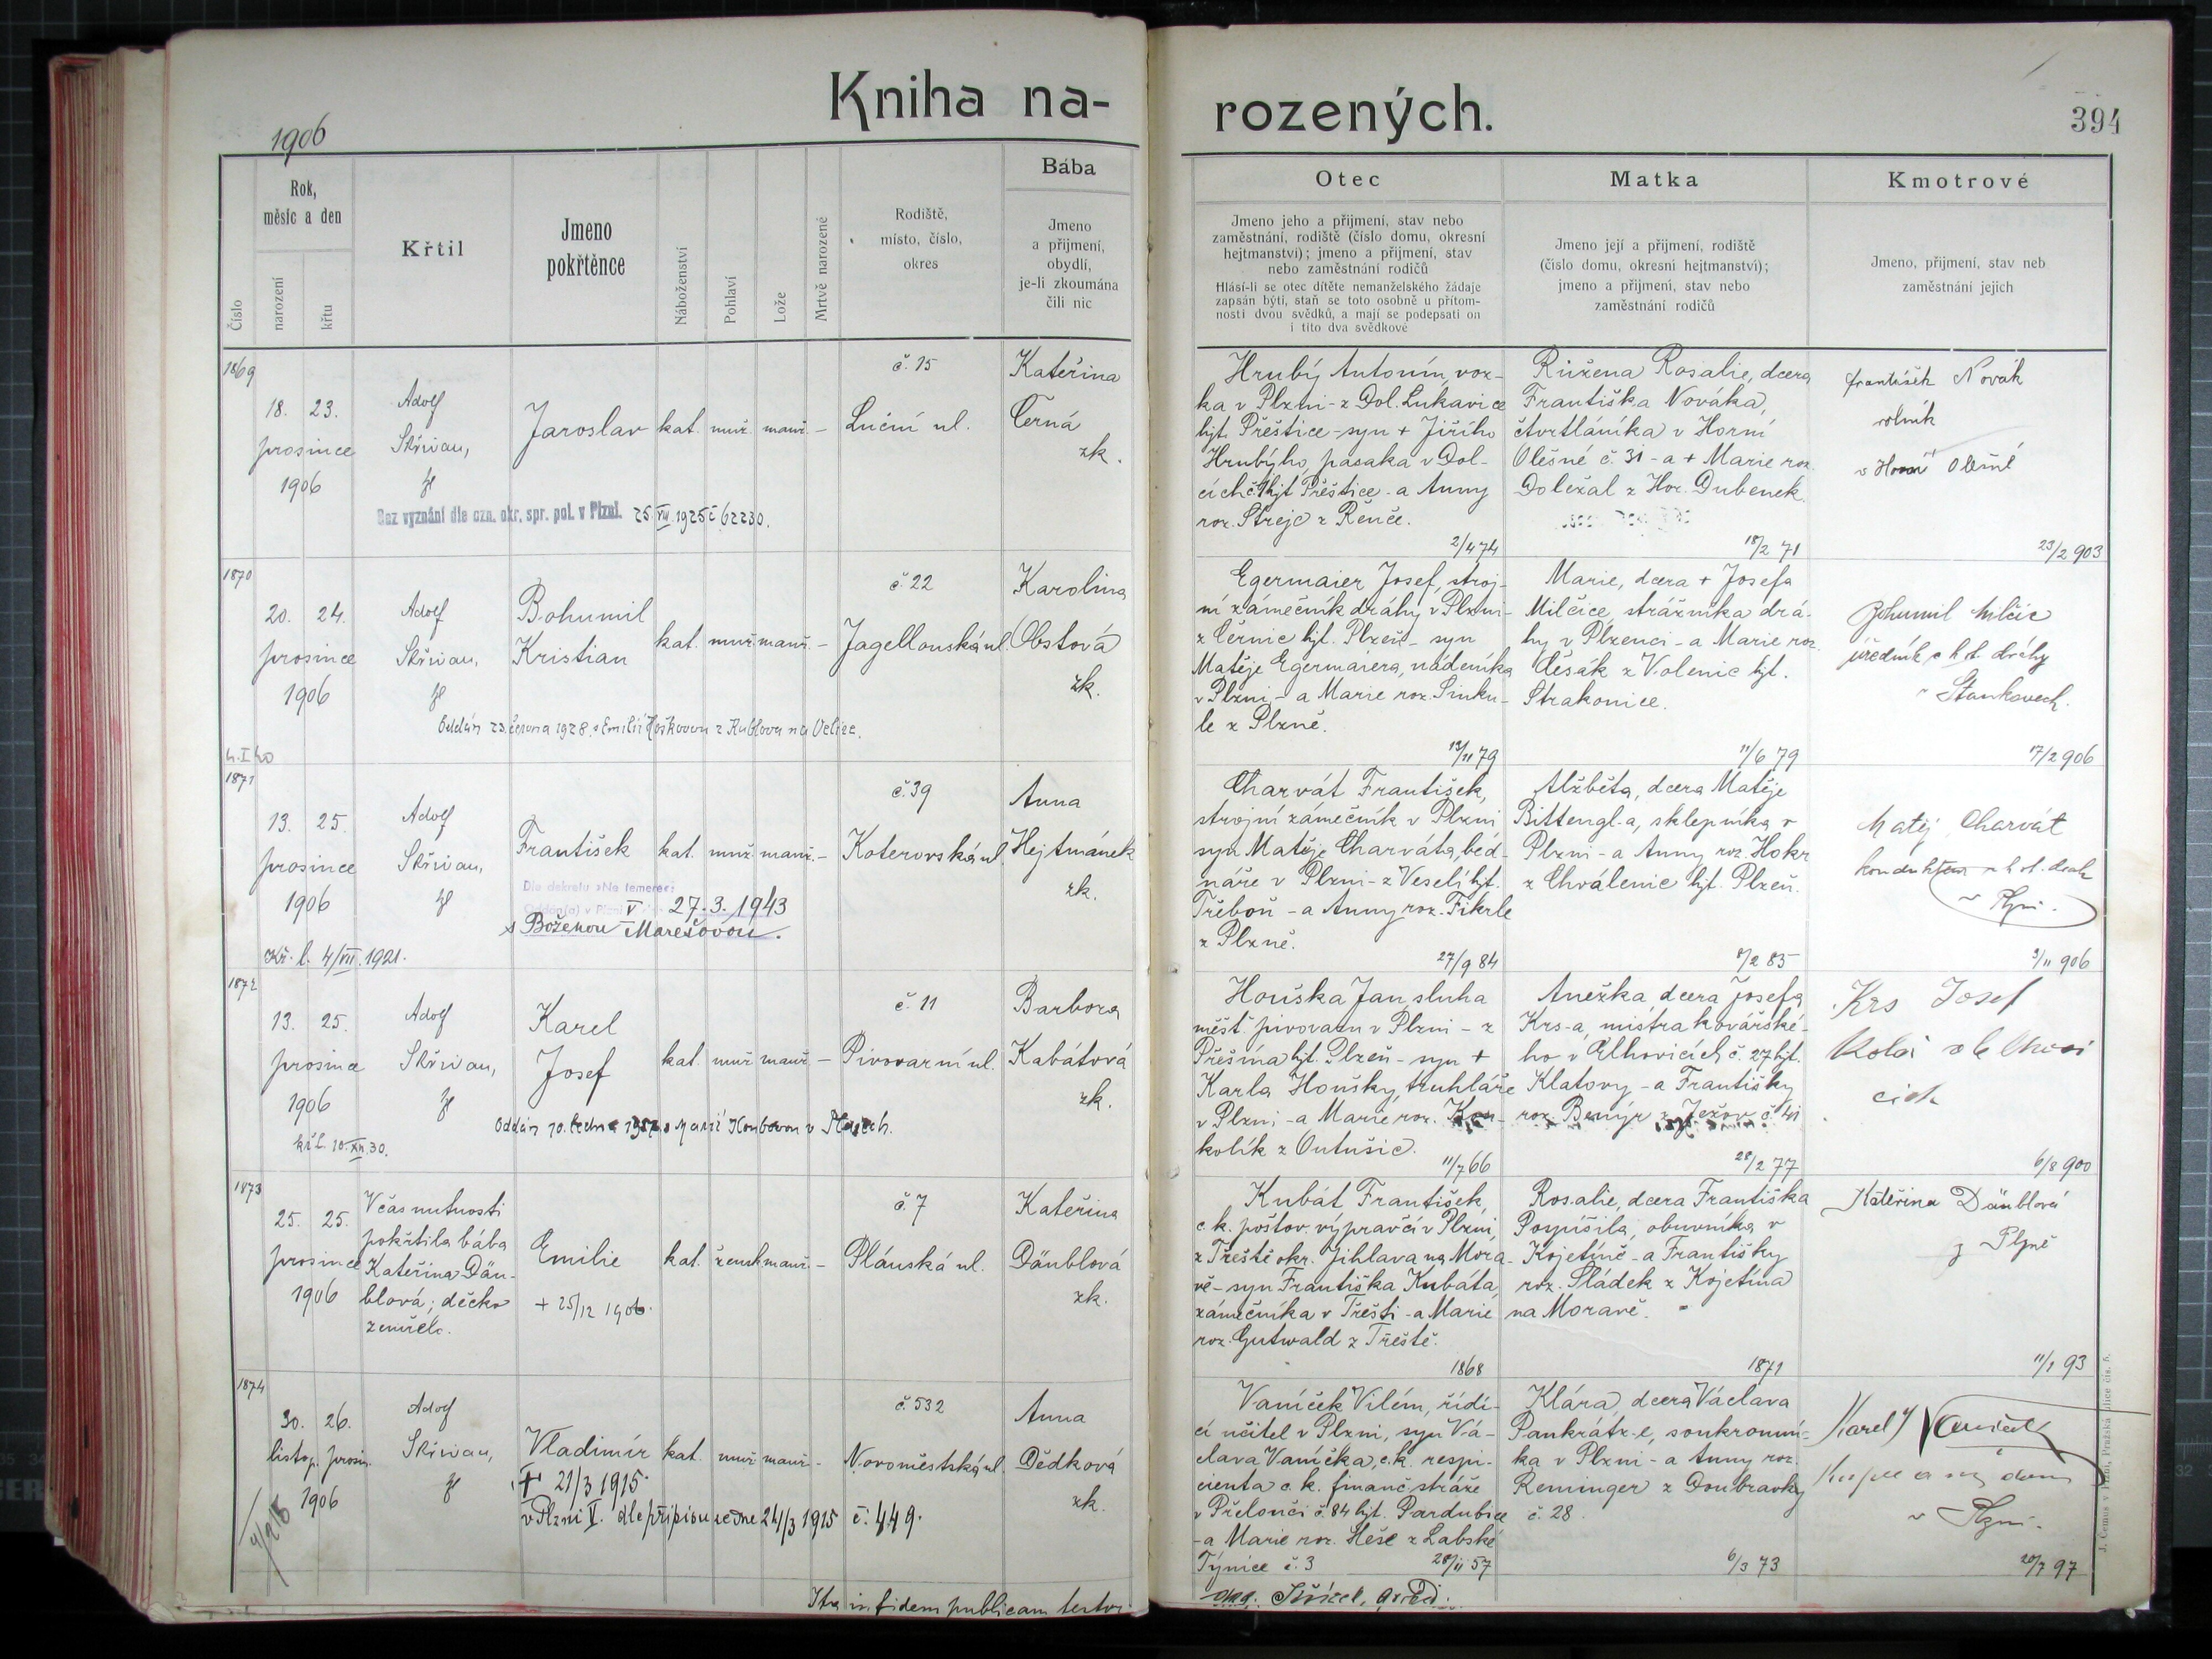 Kniha na-
rozených.
394
1906
Číslo
Rok,
měsíc a den
narození
křtu
Křtil
Jmeno
pokřtěnce
Náboženství
Pohlaví
Lože
Mrtvě narozené
Rodiště,
místo, číslo,
okres
Bába
Jmeno
a přijmení,
obydlí,
je-li zkoumána
čili nic
Otec
Jmeno jeho a přijmení, stav nebo
zaměstnání, rodiště (číslo domu, okresní
hejtmanství); jmeno a přijmení, stav
nebo zaměstnání rodičů
Hlásí-li se otec dítěte nemanželského žádaje
zapsán býti, staň se toto osobně u přítom-
nosti dvou svědků, a mají se podepsati on
i tito dva svědkové
Matka
Jmeno její a přijmení, rodiště
(číslo domu, okresní hejtmanství);
jmeno a přijmení, stav nebo
zaměstnání rodičů
Kmotrové
Jmeno, přijmení, stav neb
zaměstnání jejich
1869
18. 23.
prosince
1906
Adolf
Skřivan,
Jaroslav
kat. muž. manž. –
č. 15
Luční ul.
Kateřina
Černá
zk.
Bez vyznání dle ozn. okr. spr. pol. v Plzni. 25. VIII. 1925 č 62230.
Hrubý Antonín, voz-
ka v Plzni - z Dol. Lukavice
hjt. Přeštice - syn + Jiřího
Hrubýho, pasáka v Dol-
cích hjt Přeštice - a Anny
roz. Strejc z Řenče.
2/4 74
Růžena Rosalie, dcera
Františka Nováka,
čtvrtláníka v Horní
Olešné č. 31 - a + Marie roz.
Doležal z Hor. Dubenek.
18/2 71
František Novák
rolník
v Horní Olešné
23/2 903
1870
20. 24.
prosince
1906
Adolf
Skřivan,
Bohumil
Kristian
kat. muž. manž. –
č. 22
Jagellonská ul.
Karolina
Obstová
zk.
Oddán 23. června 1928 s Emilií Hoškovou z Kublova na Velize.
4. I 40
Egermaier Josef, stroj-
ní zámečník dráhy v Plzni -
z Černic hjt. Plzeň - syn
Matěje Egermaiera, nádeníka
v Plzni - a Marie roz. Sinku-
le z Plzně.
13/11 79
Marie, dcera + Josefa
Milčice, strážníka drá-
hy v Plzenci - a Marie roz.
Česák z Volenic hjt.
Strakonice.
11/6 79
Bohumil Milčic
úředník c. k. st. dráhy
v Staňkovech.
17/2 906
1871
13. 25.
prosince
1906
Adolf
Skřivan,
František
kat. muž. manž. –
č. 39
Koterovská ul.
Anna
Hejtmánek
zk.
Dle dekretu »Ne temere«:
Oddán(a) v Plzni V 27. 3. 1943
s Boženou Marešovou.
Kř. l. 4/VII. 1921.
Charvát František,
strojní zámečník v Plzni
syn Matěje Charváta, bed-
náře v Plzni - z Veselí hjt.
Třeboň - a Anny roz. Fikrle
z Plzně.
27/9 84
Alžběta, dcera Matěje
Bittengl-a, sklepníka v
Plzni - a Anny roz. Hokr
z Chválenic hjt. Plzeň.
8/2 85
Matěj Charvát
v Plzni.
3/11 906
1872
13. 25.
prosince
1906
Adolf
Skřivan,
Karel
Josef
kat. muž. manž. –
č. 11
Pivovarní ul.
Barbora
Kabátová
zk.
kř. l. 10. XII. 30.
Houška Jan, sluha
měšť. pivovaru v Plzni - z
Přešína hjt. Plzeň - syn +
Karla Houšky, truhláře
v Plzni - a Marie roz. Kou-
kolík z Outušic.
11/7 66
Anežka, dcera Josefa
Krs-a, mistra kovářské-
ho v Elhovicích č. 27 hjt.
Klatovy - a Františky
roz. Benýr z Ježov č. 41
28/2 77
Krs Josef
6/8 900
1873
25. 25.
prosince
1906
V čas nutnosti
pokřtila bába
Kateřina Dän-
blová; děcko
zemřelo.
Emilie
+ 25/12 1906.
kat. žensk. manž. –
č. 7
Plánská ul.
Kateřina
Dänblová
zk.
Kubát František,
c. k. poštov. výpravčí v Plzni,
z Třeště okr. Jihlava na Mora-
vě - syn Františka Kubáta,
zámečníka v Třešti - a Marie
roz. Gutwald z Třeště.
1868
Rosalie, dcera Františka
Pospíšila, obuvníka v
Kojetíně - a Františky
roz. Sládek z Kojetína
na Moravě.
1871
Kateřina Dänblová
z Plzně
11/1 93
1874
30. 26.
listop. prosin.
1906
Adolf
Skřivan,
Vladimír
kat. muž. manž. –
č. 532
Novoměstská ul.
Anna
Dědková
zk.
+ 21/3 1915.
v Plzni V. dle přípisu ze dne 24/3 1915 č. 449.
Vaníček Vilém, řídí-
cí učitel v Plzni, syn Vá-
clava Vaníčka, c. k. respi-
cienta c. k. finanč. stráže
v Přelouči č. 84 hjt. Pardubice
- a Marie roz. Heše z Labské
Týnice č. 3
28/11 57
Klára, dcera Václava
Pankrátz-e, soukromní-
ka v Plzni - a Anny roz.
Reminger z Doubravky
č. 28.
6/3 73
Karel Vaníček
v Plzni.
20/7 97
Ita in fidem publicam testor
J. Černus v Plzni, Pražská ulice čís. 6.